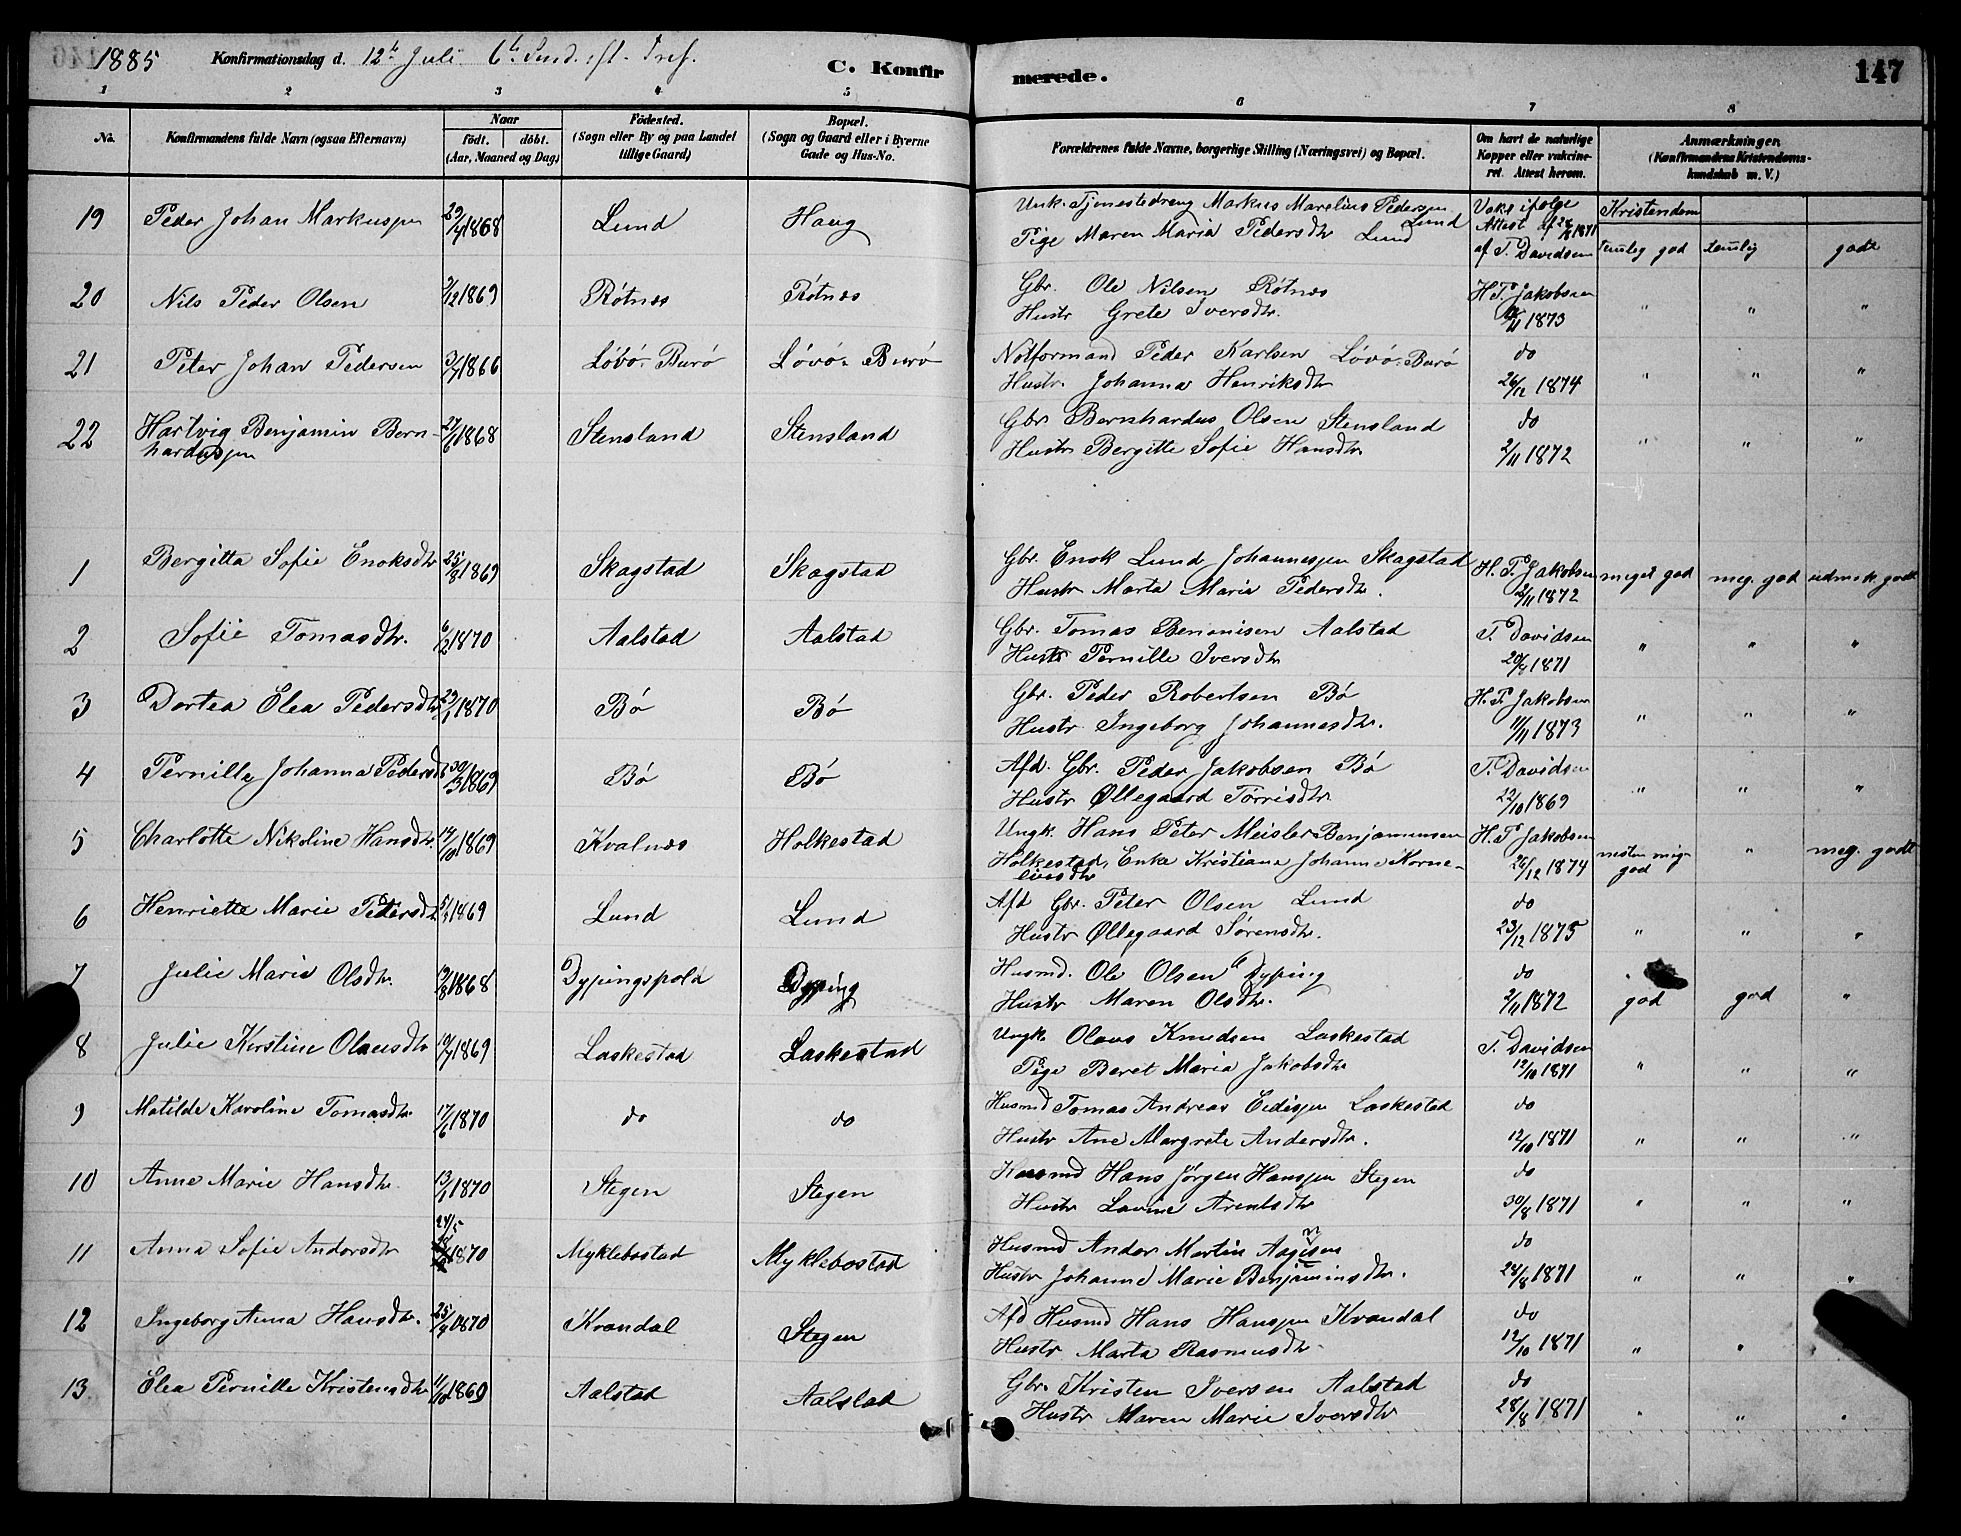 1885 Konfirmationsdag d. 12te Juli 6te Sund. eft. Tref. C. Konfirmerede. 147
1 2 3 4 5 6 7 8
No. Konfirmandens fulde Navn (ogsaa Efternavn) Naar födt. döbt. (Aar, Maaned og Dag) Födested. (Sogn eller By og paa Landet tillige Gaard) Bopæl. (Sogn og Gaard eller i Byerne Gade og Hus-No.
Forældrenes fulde Navne, borgerlige Stilling (Næringsvei) og Bopæl. Om havt de naturlige Kopper eller vakcineret. Attest herom. Anmærkninger. (Konfirmandens Kristendomskundskab m. V.)
19 Peder Johan Markussen 29/4 1868 Lund Haug Unk. Tjenestedreng Markus Marelius Pedersen Lund Vakc ifølge Kristendom
Pige Maren Maria Pedersdtr Lund Attest af 28/8 1871 af T. Davidsen temlig god temlig godt
20 Nils Peder Olsen 9/12 1869 Røtnæs Røtnæs Gbr. Ole Nilsen Røtnæs H. P. Jakobsen " " "
Hustr Grete Iversdtr. 11/11 1873
21 Peter Johan Pedersen 3/7 1866 Løvö-Burö Løvö-Burö Notformand Peder Karlsen Løvö-Burö do " " "
Hustr. Johanna Henriksdtr 26/12 1874
22 Hartvig Benjamin Bernhardussen 27/6 1868 Stensland Stensland Gbr. Bernhardus Olsen Stensland do " " "
Hustr Bergitte Sofie Hansdtr 2/11 1872
1 Bergitta Sofie Enoksdtr 25/8 1869 Skagstad Skagstad Gbr. Enok Lund Johannessen Skagstad H. P. Jakobsen meget god meg. god udmerk. godt
Hustr Marta Maria Pedersdtr. 2/11 1872
2 Sofie Tomasdtr. 6/2 1870 Aalstad Aalstad Gbr. Tomas Benonisen Aalstad T. Davidsen " " "
Hustr Pernille Iversdtr 28/8 1871
3 Dortea Elea Pedersdtr 29/1 1870 Bö Bö Gbr. Peder Robertsen Bö H. P. Jakobsen " " "
Hustr Ingeborg Johannesdtr. 11/11 1873
4 Pernille Johanna Pedersdtr 30/3 1869 Bö Bö Afd. Gbr. Peder Jakobsen Bö T. Davidsen " " "
Hustr Øllegaard Tørrisdtr 22/10 1869
5 Charlotte Nikoline Hansdtr. 14/10 1869 Kvalnæs Holkestad Ungk. Hans Peter Meisler Benjaminsen H. P. Jakobsen næsten meg. god " meg. godt
Holkestad, Enke Kristiana Johanna Korneliusdtr 26/12 1874
6 Henriette Marie Petersdtr 1869 Lund Lund Afd Gbr. Peter Olsen Lund do " " "
Hustr Øllegaard Sørensdtr. 23/12 1875
7 Julie Marie Olsdtr. 19/8 1868 Dypingspold Dyping Husmd. Ole Olsen Dyping do
Hustr Maren Olsdtr. 2/11 1872 god god "
8 Julie Kirstine Olausdtr 10/7 1869 Laskestad Laskestad Ungk. Olaus Knudsen Laskestad T. Davidsen " " "
Pige Beret Maria Jakobsdtr 12/10 1871
9 Matilde Karoline Tomasdtr 17/6 1870 do do Husmd Tomas Andreas Eidissen Laskestad do
Hustr Ane Margrete Andersdtr. 12/10 1871 " " "
10 Anne Marie Hansdtr. 13/1 1870 Stegen Stegen Husmd Hans Jørgen Hanssen Stegen do
Hustr Lavine Arentsdtr 30/8 1871 " " "
11 Anna Sofie Andersdtr 24/5 1870 Myklebostad Myklebostad Husmd Ander Martin Aagesen do
Hustr Johanne Marie Benjaminsdtr. 28/8 1871 " " "
12 Ingeborg Anna Hansdtr. 25/4 1870 Kvandal Stegen Afd Husmd Hans Hanssen Kvandal do
Hustr Marta Rasmusdtr 12/10 1871 " " "
13 Elea Pernille Kristensdtr 11/10 1869 Aalstad Aalstad Gbr. Kristen Iversen Aalstad do
Hustr Maren Marie Iversdtr 28/8 1871 " " "